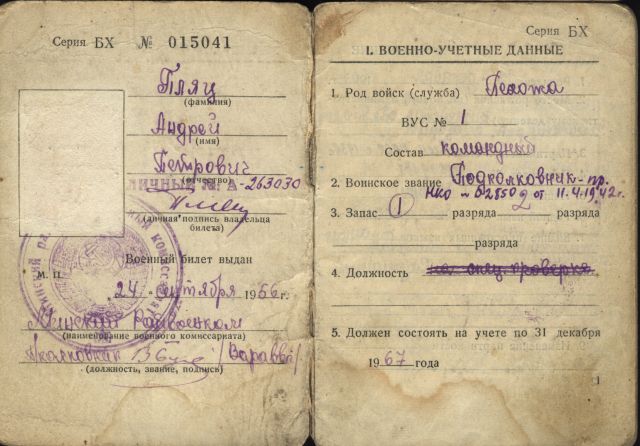 Серия БХ № 015041
Пляц
(фамилия)
Андрей
(имя)
Петрович
(отчество)
ЛИЧНЫЙ № А-263030
(личная подпись владельца
билета)
М. П.
Военный билет выдан
„24" сентября 1966 г.
Райвоенком
(наименование военного комиссариата)
Полковник /Варавва/
(должность, звание, подпись)
Серия БХ
I. ВОЕННО-УЧЕТНЫЕ ДАННЫЕ
1. Род войск (служба) Пехота
ВУС № 1
Состав командный
2. Воинское звание Подполковник - пр.
НКО № 02850 от 11.4.1942г.
3. Запас 1 разряда 2 разряда
разряда
4. Должность на спец. проверке
5. Должен состоять на учете по 31 декабря
1967 года
1